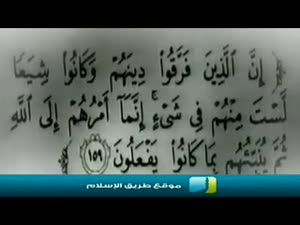 إِنَّ الَّذِينَ فَرَّقُوا دِينَهُمْ وَكَانُوا شِيَعًا
لَسْتَ مِنْهُمْ فِي شَيْءٍ ۚ إِنَّمَا أَمْرُهُمْ إِلَى اللَّهِ
ثُمَّ يُنَبِّئُهُم بِمَا كَانُوا يَفْعَلُونَ ١٥٩
موقع طريق الإسلام